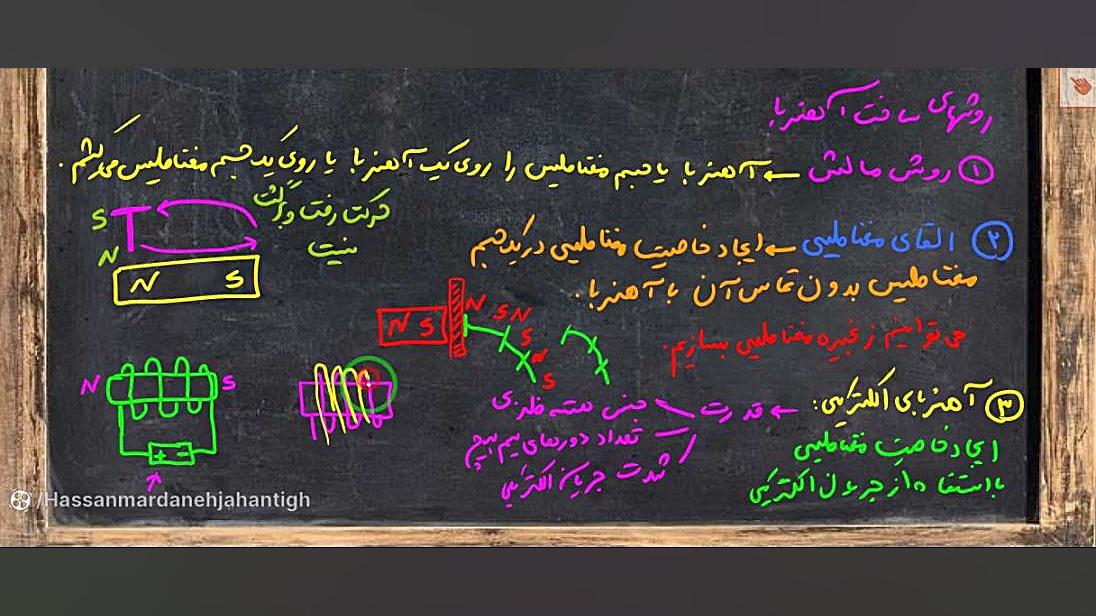 روشهای ساخت آهنربا
① روش مالش ← آهنربا یا جسم مغناطیس را روی یک آهنربا یا روی یک جسم مغناطیس می‌کشیم.
حرکت رفت و برگشت
نیست
S
N
N S
② القای مغناطیسی ← ایجاد خاصیت مغناطیسی در یک جسم
مغناطیس بدون تماس آن با آهنربا.
N S
N S N S N S
می‌توانیم زنجیره مغناطیسی بسازیم.
③ آهنربای الکتریکی: ← قدرت
جنس هسته فلزی
تعداد دورهای سیم پیچ
شدت جریان الکتریکی
ایجاد خاصیت مغناطیسی
با استفاده از جریان الکتریکی
N S
+ -
/Hassanmardanehjahantigh